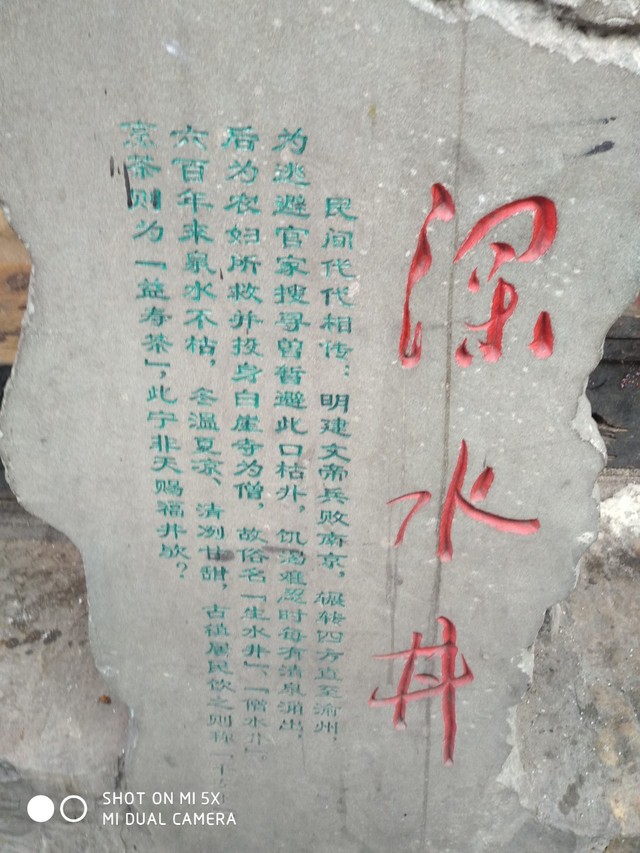 深水井
民间代代相传：明建文帝兵败南京，辗转四方直至渝州，
为逃避官家搜寻曾暂避此口枯井，饥渴难忍时每有清泉涌出，
后为农妇所救并投身白崖寺为僧，故俗名「生水井」、「僧水井」
六百年来泉水不枯，冬温夏凉、清冽甘甜，古镇居民饮之则称「
烹茶则为「益寿茶」，此宁非天赐福井欤？
SHOT ON MI 5X
MI DUAL CAMERA